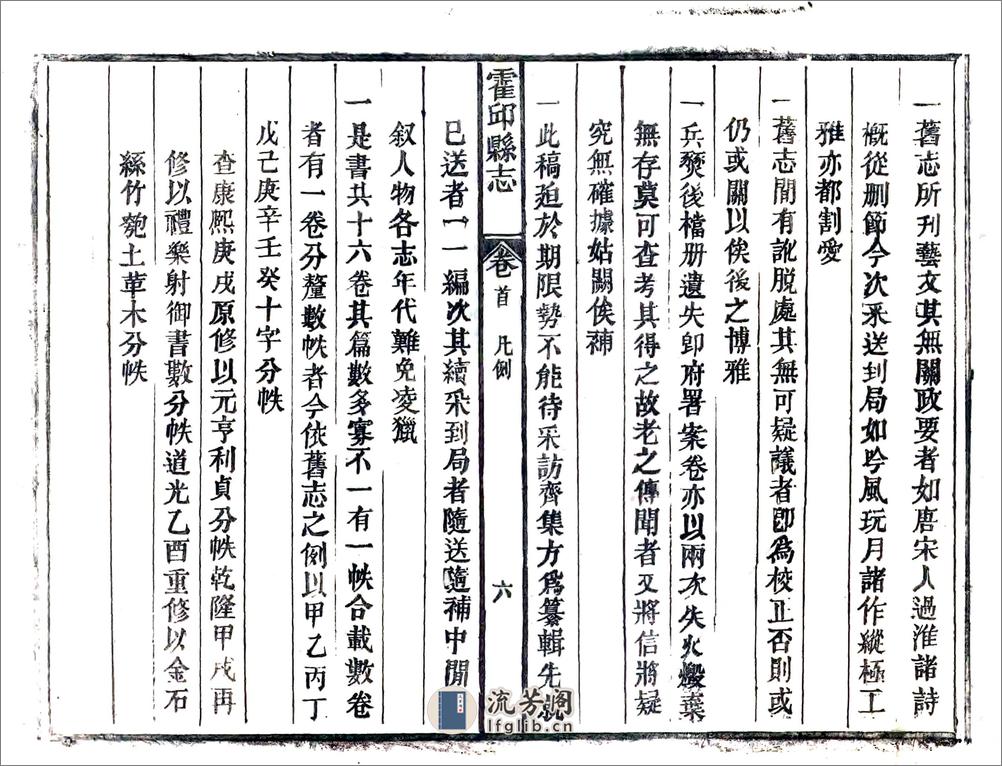 一舊志所刊藝文其無關政要者如唐宋人過淮諸詩
概從刪節今次采送到局如吟風玩月諸作縱極工
雅亦都割愛
一舊志間有訛脫處其無可疑議者即為校正否則或
仍或闕以俟後之博雅
一兵燹後檔册遺失即府署案卷亦以兩次失火燬棄
無存莫可查考其得之故老之傳聞者又將信將疑
究無確據姑闕俟補
一此稿迫於期限勢不能待采訪齊集方爲纂輯先就
已送者一一編次其續采到局者隨送隨補中間
叙人物各志年代難免凌獵
一是書共十六卷其篇數多寡不一有一帙合載數卷
者有一卷分釐數帙者今依舊志之例以甲乙丙丁
戊己庚辛壬癸十字分帙
查康熙庚戌原修以元亨利貞分帙乾隆甲戌再
修以禮樂射御書數分帙道光乙酉重修以金石
絲竹匏土革木分帙
霍邱縣志
卷首 凡例
六
流芳阁
lfglib.cn